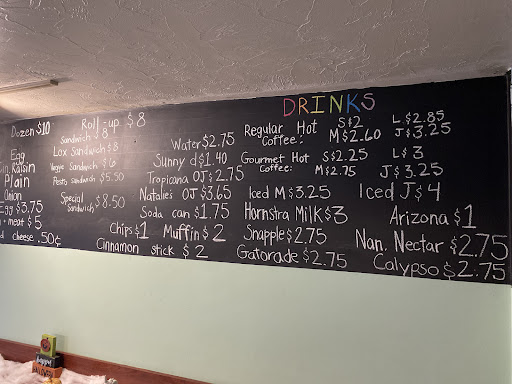 DRINKS
Dozen $10
Egg
Cin. Raisin
Plain
Onion
Egg $3.75
+ meat $5
cheese .50¢
Roll-up $8
Sandwich $8
Lox Sandwich $8
Veggie Sandwich $6
Pesto Sandwich $5.50
Special Sandwich $8.50
Chips $1 Muffin $2
Cinnamon stick $2
Water $2.75
Sunny d $1.40
Tropicana OJ $2.75
Natalie's OJ $3.65
Soda can $1.75
Regular Hot Coffee: S $2 M $2.60 L $2.85 J $3.25
Gourmet Hot Coffee: S $2.25 M $2.75 L $3 J $3.25
Iced M $3.25 Iced J $4
Hornstra Milk $3 Arizona $1
Snapple $2.75 Nan. Nectar $2.75
Gatorade $2.75 Calypso $2.75